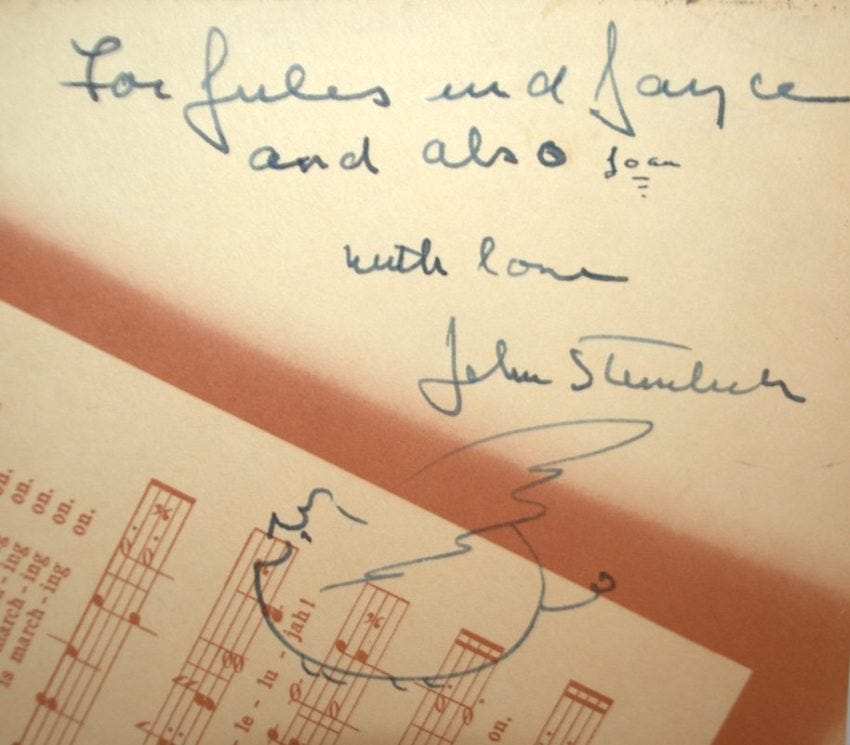 For Jules and Joyce
and also Joan
with love
John Steinbeck
on.
on.
on.
on.
on.
- ing
march - ing
is march - ing
le - lu - jah!
on.